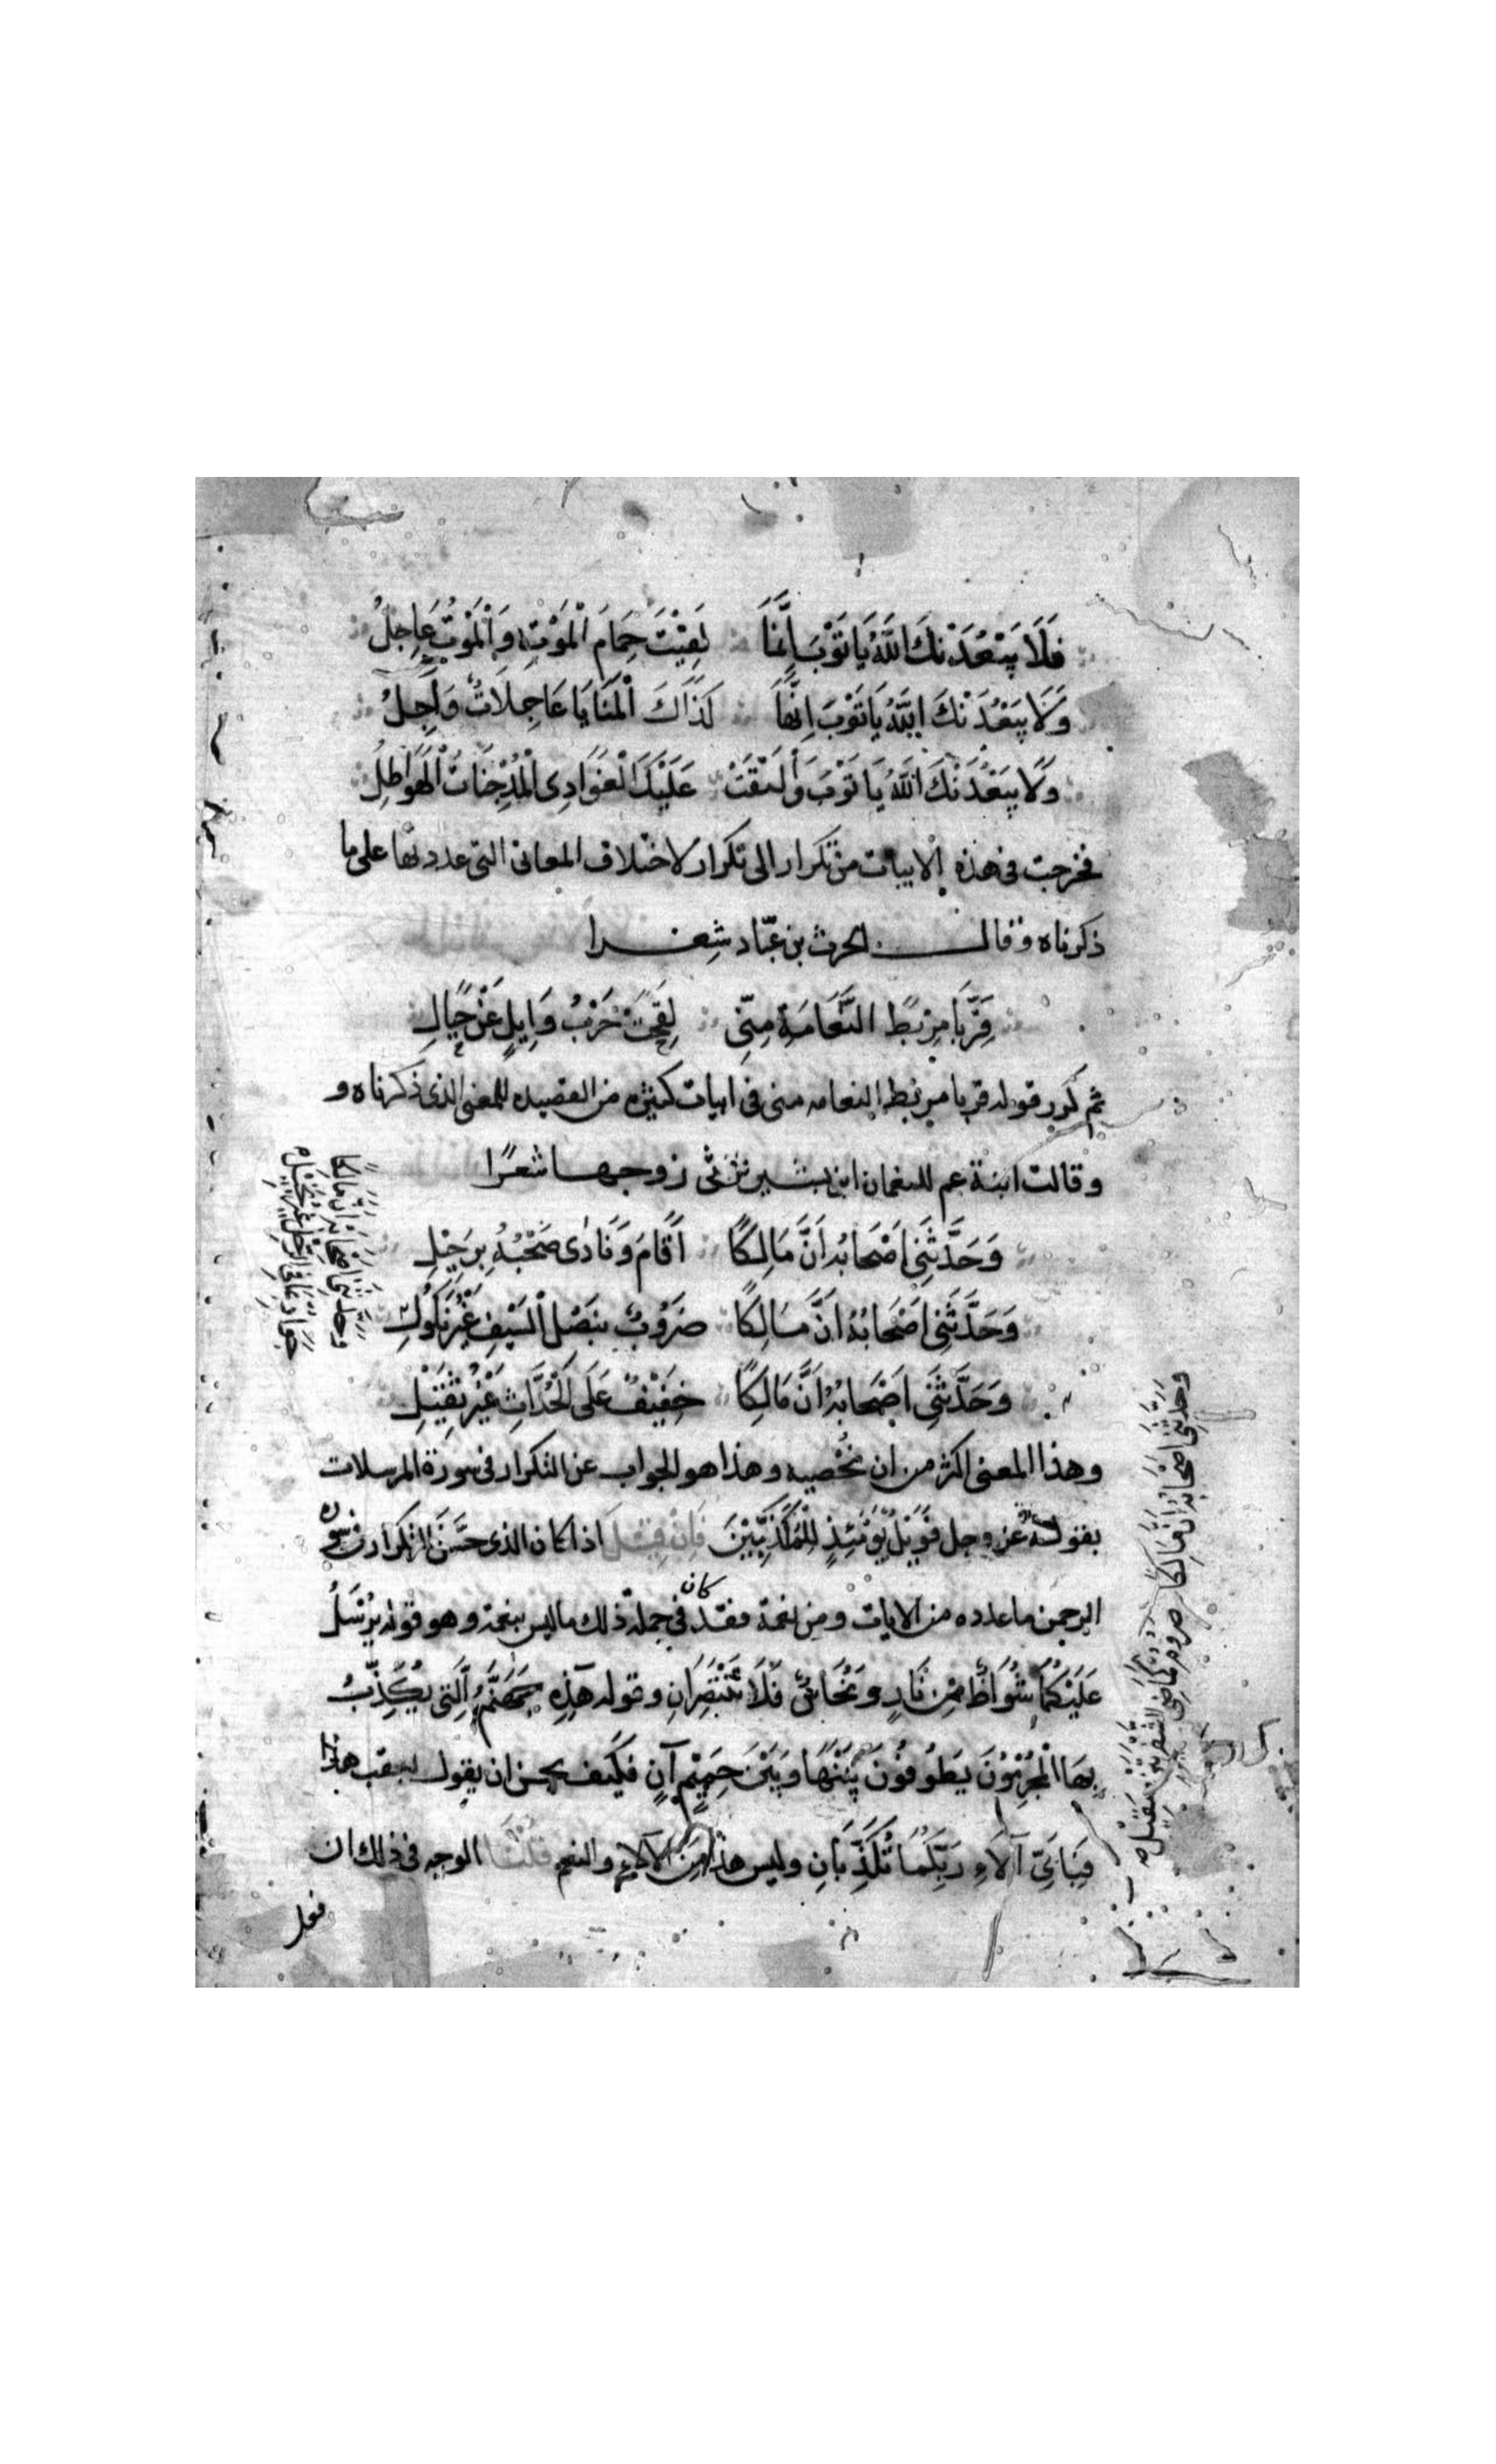 فَلَا يَبْعُدَنْكَ اللَّهُ يَا تَوْبَ إِنَّمَا لَقِيْتَ حِمَامَ الْمَوْتِ وَالْمَوْتُ عَاجِلُ
وَلَا يَبْعُدَنْكَ اللَّهُ يَا تَوْبَ اِنَّهَا كَذَاكَ الْمَنَايَا عَاجِلَاتٌ وَآجِلُ
وَلَا يَبْعُدَنْكَ اللَّهُ يَا تَوْبَ وَالْتَقَتْ عَلَيْكَ الْغَوَادِى الْمُدْجِنَاتُ الْهَوَاطِلُ
فخرجت فى هذه الابيات من تكرار الى تكرار لاختلاف المعانى التى عددتها على ما
ذكرناه وقال الحرث بن عبّاد شعرا
قَرِّبَا مَرْبَطَ النَّعَامَةِ مِنِّى لَقِحَتْ حَرْبُ وَايِلٍ عَنْ حِيَالِ
ثم كرر قوله قربا مربط النعامه منى فى ابيات كثيره من القصيده للمعنى الذى ذكرناه و
وقالت ابنة عم للنعمان ابن بشير ترثى زوجها شعرًا
وَحَدَّثَنِى اَصْحَابُهُ اَنَّ مَالِكًا اَقَامَ وَنَادَى صَحْبُهُ بِرَحِيْلِ
وَحَدَّثَنِى اَصْحَابُهُ اَنَّ مَالِكًا ضَرُوْبٌ بِنَصْلِ السَّيْفِ غَيْرُ نَكُوْلِ
وَحَدَّثَنِى اَصْحَابُهُ اَنَّ مَالِكًا خَفِيْفٌ عَلَى الْحُدَّاثِ غَيْرُ ثَقِيْلِ
وهذا المعنى اكثر من ان نُحْصيه وهذا هو الجواب عن التكرار فى سورة المرسلات
بقوله عز وجل فَوَيْلٌ يَوْمَئِذٍ لِلْمُكَذِّبِيْنَ فَاِنْ قِيْلَ اذا كان الذى حَسَّنَ التكرار فى سورة
الرحمن ما عدده من الايات ومن نعمة فقد كان فى جملة ذلك ما ليس بنعمة وهو قوله يُرْسَلُ
عَلَيْكُمَا شُوَاظٌ مِنْ نَارٍ وَنُحَاسٌ فَلَا تَنْتَصِرَانِ وقوله هَذِهِ جَهَنَّمُ الَّتِى يُكَذِّبُ
بِهَا الْمُجْرِمُوْنَ يَطُوفُونَ بَيْنَهَا وَبَيْنَ حَمِيْمٍ آنٍ فكيف يحسن ان يقول بعقب هذا
فَبِاَىِّ آلَاءِ رَبِّكُمَا تُكَذِّبَانِ وليس هذا مِنَ الآلاءِ والنعم قلنا الوجه فى ذلك ان
فعل
وحدثنى اصحابه ان مالكا
جواد بما فى الرحل غير بخيل
وحدثنى اصحابه ان مالكا صروم كماضى الشفرتين صقيل